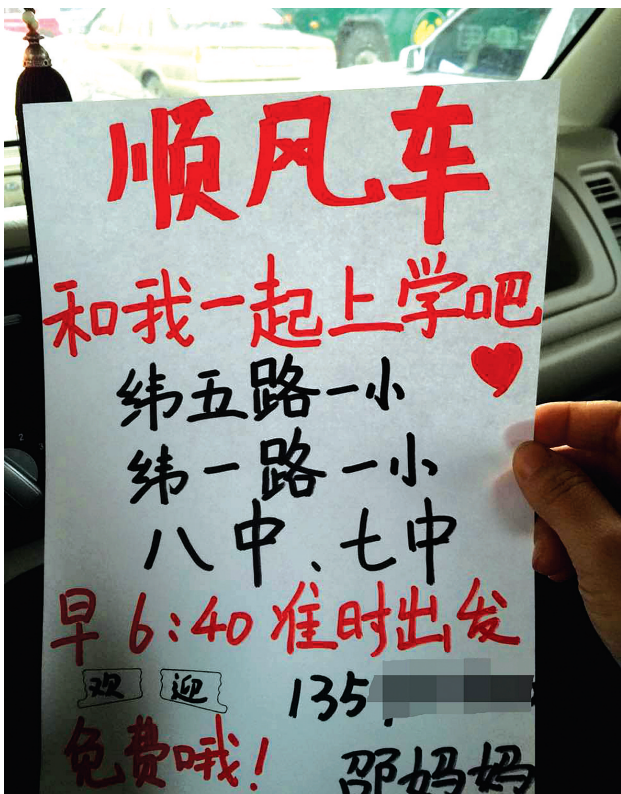 顺风车
和我一起上学吧
纬五路一小
纬一路一小
八中、七中
早6:40准时出发
欢迎 135
免费哦! 邵妈妈